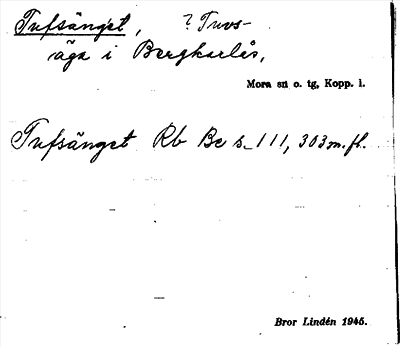 Tufsänget, ? Tuvs-
äga i Bergkarlås,
Mora sn o. tg, Kopp. l.
Tufsänget Rb Bc s. 111, 303 m.fl.
Bror Lindén 1945.